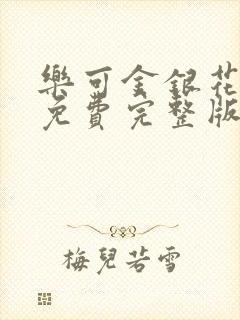 樂可金銀花
免費完整版
梅兒若雪